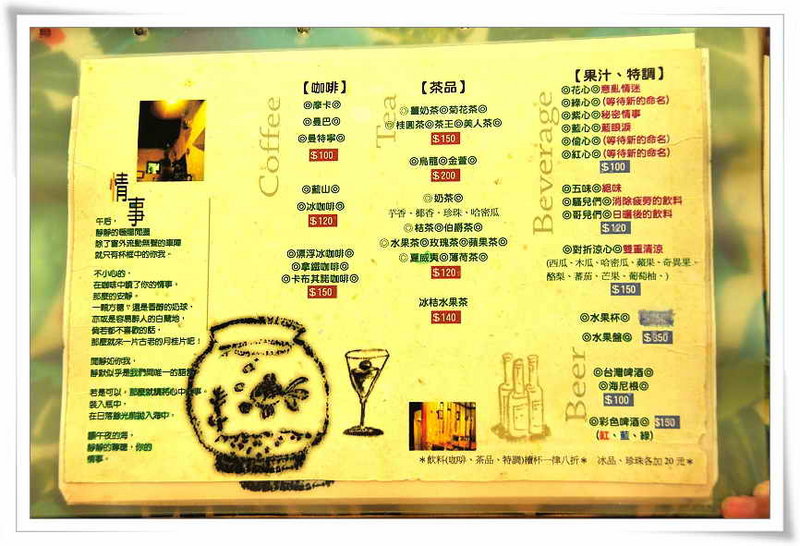 情事
午后，
靜靜的暖陽閒灑
除了窗外流動無聲的車陣
就只有杯框中的你我。
不小心的，
在咖啡中續了你的情事，
那麼的安靜。
一顆方糖、還是香醇的奶球，
亦或是容易醉人的白蘭地，
倘若都不喜歡的話，
那麼就來一片古老的月桂片吧！
閒靜如你我，
靜默似乎是我們間唯一的語言
若是可以，那麼就請將心中事，
裝入瓶中，
在日落餘光前拋入海中，
讓午夜的海，
靜靜的蕩漾，你的
情事。
Coffee
【咖啡】
◎摩卡◎
◎曼巴◎
◎曼特寧◎
$100
◎藍山◎
◎冰咖啡◎
$120
◎漂浮冰咖啡◎
◎拿鐵咖啡◎
◎卡布其諾咖啡◎
$150
Tea
【茶品】
◎薑奶茶◎菊花茶◎
◎桂圓茶◎茶王◎美人茶◎
$150
◎烏龍◎金萱◎
$200
◎奶茶◎
芋香、椰香、珍珠、哈密瓜
◎桔茶◎伯爵茶◎
◎水果茶◎玫瑰茶◎蘋果茶◎
◎夏威夷◎薄荷茶◎
$120
冰桔水果茶
$140
Beverage
【果汁、特調】
◎花心◎意亂情迷
◎綠心◎(等待新的命名)
◎紫心◎秘密情事
◎藍心◎藍眼淚
◎偷心◎(等待新的命名)
◎紅心◎(等待新的命名)
$100
◎五味◎絕味
◎騷兒們◎消除疲勞的飲料
◎哥兒們◎日曬後的飲料
$120
◎對折涼心◎雙重清涼
(西瓜、木瓜、哈密瓜、蘋果、奇異果、
酪梨、蕃茄、芒果、葡萄柚、)
$150
◎水果杯◎
◎水果盤◎ $350
Beer
◎台灣啤酒◎
◎海尼根◎
$100
◎彩色啤酒◎ $150
(紅、藍、綠)
＊飲料(咖啡、茶品、特調)續杯一律八折＊ 冰品、珍珠各加20元＊